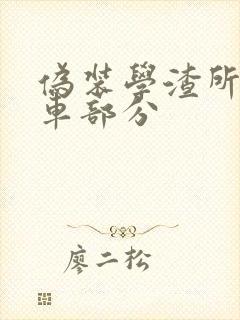 偽裝學渣所
車部分
廖二松